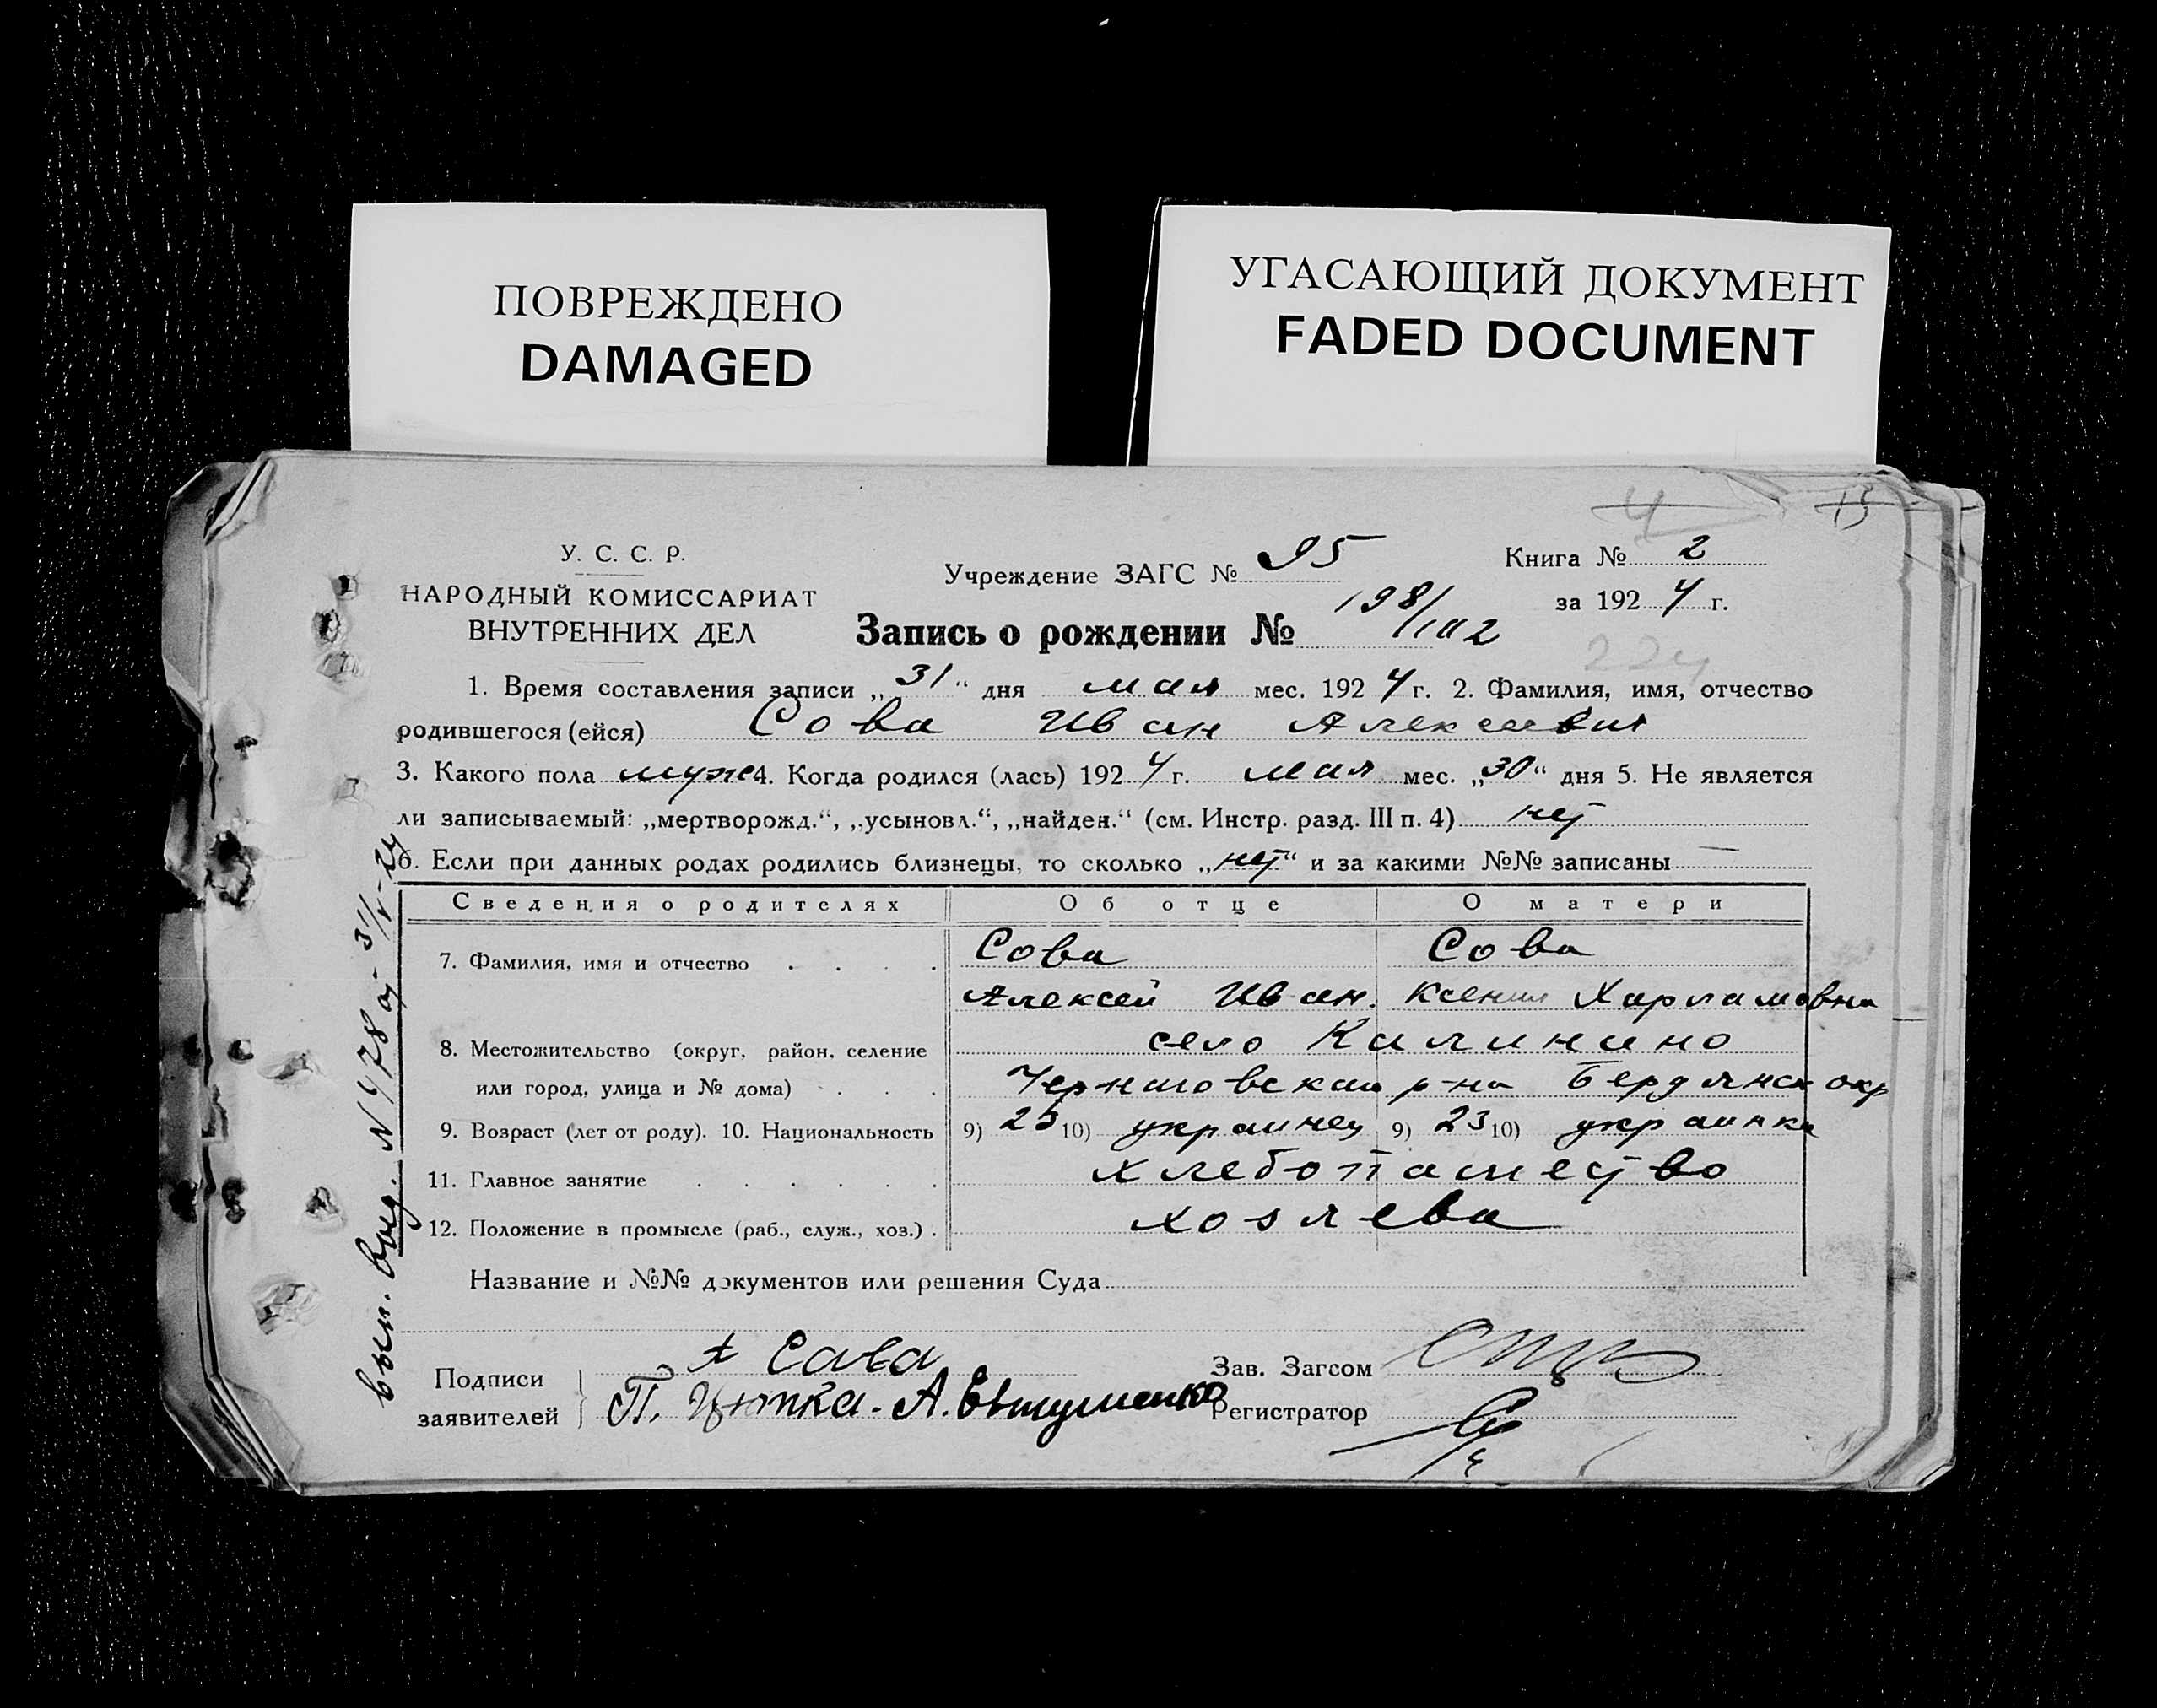 ПОВРЕЖДЕНО
DAMAGED
УГАСАЮЩИЙ ДОКУМЕНТ
FADED DOCUMENT
4 13
У. С. С. Р.
НАРОДНЫЙ КОМИССАРИАТ
ВНУТРЕННИХ ДЕЛ
Учреждение ЗАГС № 95
Книга № 2
за 1924 г.
Запись о рождении № 198/102
224
1. Время составления записи „31“ дня мая мес. 1924 г. 2. Фамилия, имя, отчество
родившегося (ейся) Сова Иван Алексеевич
3. Какого пола муже 4. Когда родился (лась) 1924 г. мая мес. „30“ дня 5. Не является
ли записываемый: „мертворожд.“, „усыновл.“, „найден.“ (см. Инстр. разд. III п. 4) нет
6. Если при данных родах родились близнецы, то сколько „нет“ и за какими №№ записаны —
Сведения о родителях Об отце О матери
7. Фамилия, имя и отчество . . . . Сова Сова
Алексей Иван. Ксения Харламовна
8. Местожительство (округ, район, селение село Калинино
или город, улица и № дома) . . . Черниговская р-на Бердянск окр
9. Возраст (лет от роду). 10. Национальность 9) 25 10) украинец 9) 23 10) украинка
11. Главное занятие . . . . . . хлебопашество
12. Положение в промысле (раб., служ., хоз.) . хозяева
Название и №№ документов или решения Суда
Подписи
заявителей
А Сава
П. Цюпка - А. Евтушенко
Зав. Загсом
Регистратор
вып. выд. N 478 от 31/V-24